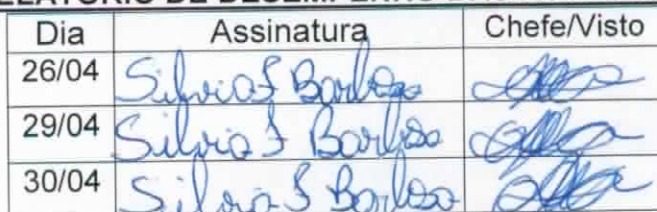 Dia Assinatura Chefe/Visto
26/04 Silvia S Barbosa
29/04 Silvia S Barbosa
30/04 Silvia S Barbosa